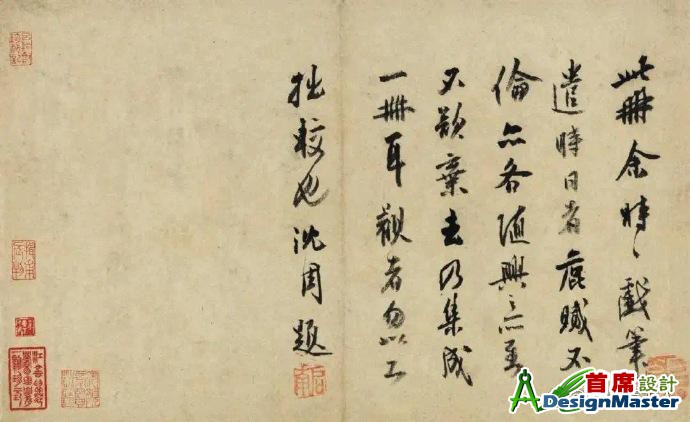 此冊余時〻戲筆
遣時日者疵贓不
倫亦各随興亦至
不欲棄去乃集成
一冊耳觀者勿以工
拙較也沈周題
首席設計
ADesignMaster